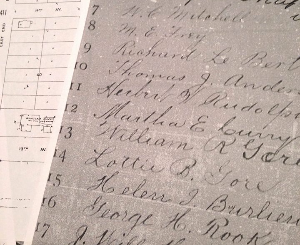 7 W. C. Mitchell
8 M. E. Frey
9 Richard Le Bert
10 Thomas J. Anden
11 Herbert Rudolph
12 Martha E. Curry
13 William R Gore
14 Lottie B. Gore
15 Helen J. Burlien
16 George H. Rook
17 J.